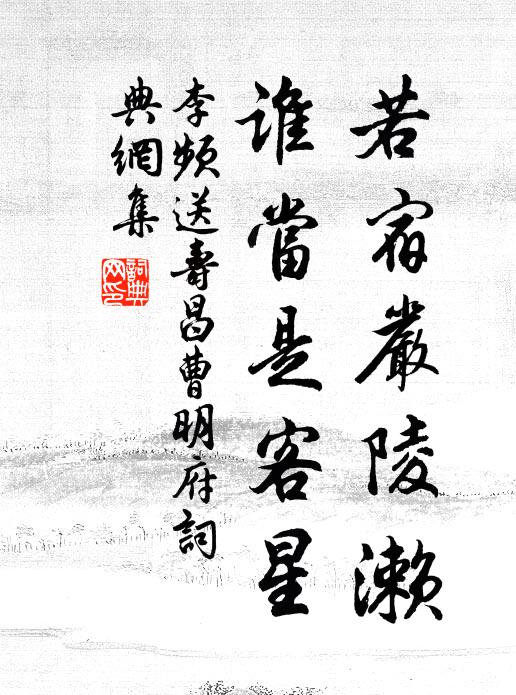 若宿嚴陵瀨
誰當是客星
李頻送壽昌曹明府詞
典網集
詞典
网印